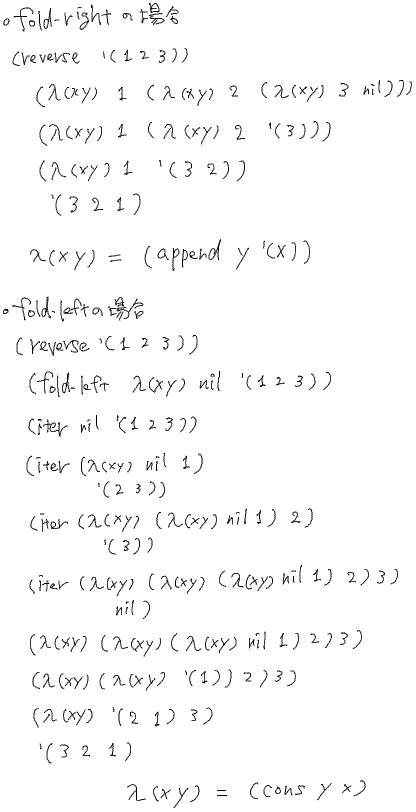 。fold-right の場合
(reverse '(1 2 3))
(λ(xy) 1 (λ(xy) 2 (λ(xy) 3 nil)))
(λ(xy) 1 (λ(xy) 2 '(3)))
(λ(xy) 1 '(3 2))
'(3 2 1)
λ(xy) = (append y '(x))
。fold-left の場合
(reverse '(1 2 3))
(fold-left λ(xy) nil '(1 2 3))
(iter nil '(1 2 3))
(iter (λ(xy) nil 1)
'(2 3))
(iter (λ(xy) (λ(xy) nil 1) 2)
'(3))
(iter (λ(xy) (λ(xy) (λ(xy) nil 1) 2) 3)
nil)
(λ(xy) (λ(xy) (λ(xy) nil 1) 2) 3)
(λ(xy) (λ(xy) '(1)) 2) 3)
(λ(xy) '(2 1) 3)
'(3 2 1)
λ(xy) = (cons y x)